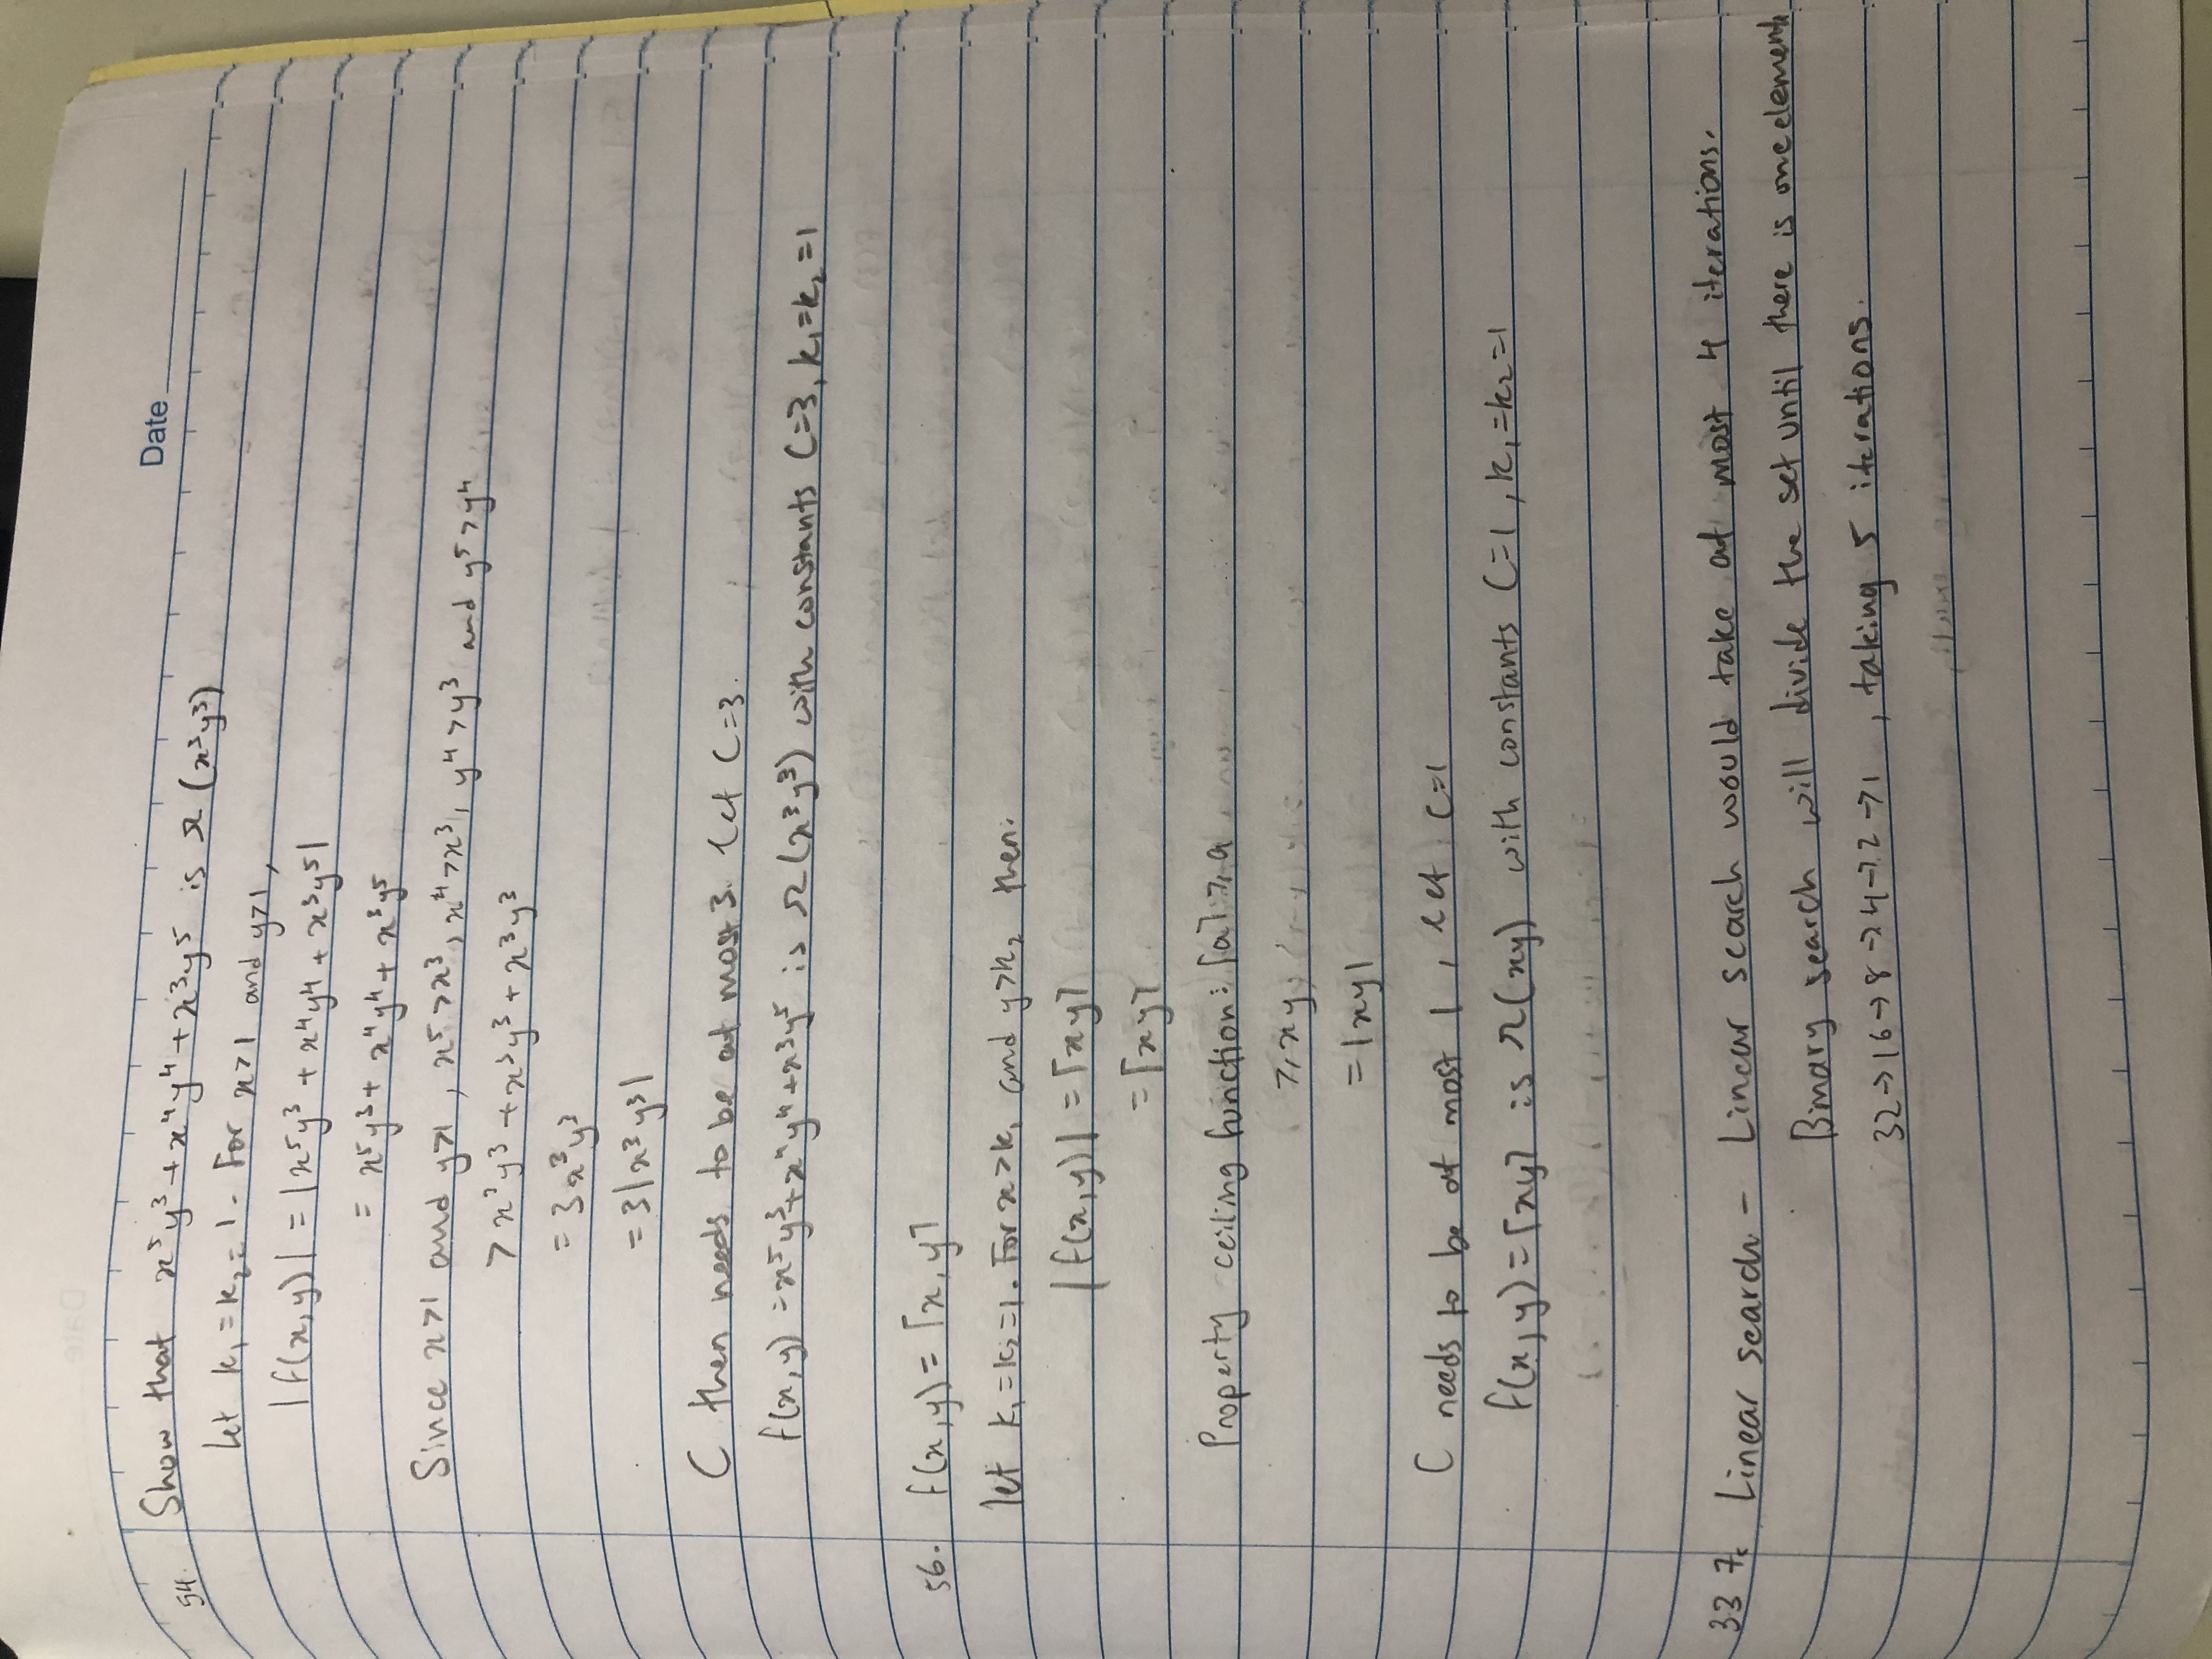 Date
54. Show that x⁵y³ + x⁴y⁴ + x³y⁵ is Ω (x³y³)
Let k₁ = k₂ = 1. For x>1 and y>1,
|f(x,y)| = |x⁵y³ + x⁴y⁴ + x³y⁵|
= x⁵y³ + x⁴y⁴ + x³y⁵
Since x>1 and y>1, x⁵>x³, x⁴>x³, y⁴>y³ and y⁵>y⁴
> x³y³ + x³y³ + x³y³
= 3x³y³
= 3|x³y³|
C then needs to be at most 3. Let C=3.
f(x,y) = x⁵y³+x⁴y⁴+x³y⁵ is Ω(x³y³) with constants C=3, k₁=k₂=1
56. f(x,y) = ⌈x,y⌉
let k₁=k₂=1. For x>k₁ and y>k₂ then:
|f(x,y)| = ⌈xy⌉
= ⌈xy⌉
Property ceiling function: ⌈a⌉ ≥ a
≥ xy
= |xy|
C needs to be at most 1, let C=1
f(x,y) = ⌈xy⌉ is Ω(xy) with constants C=1, k₁=k₂=1
33 7. Linear search - Linear search would take at most 4 iterations.
Binary search will divide the set until there is one element
32→16→8→4→2→1, taking 5 iterations.